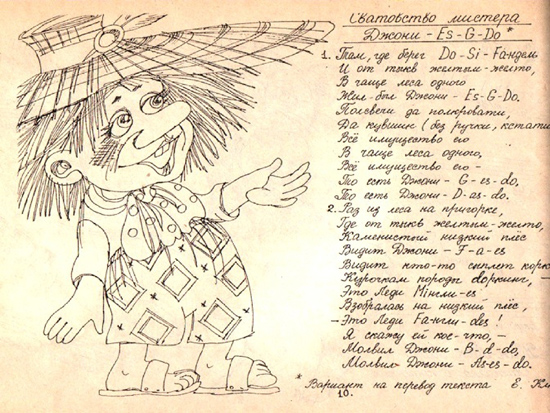 Сватовство мистера
Джони - Es-G-Do*
1. Там, где берег Do-Si-Fa-ндель
И от тыкв желтым-желто,
В чаще леса одного
Жил-был Джони - Es-G-Do.
Полсвечи да полкровати,
Да кувшин (без ручки, кстати
Всё имущество его
В чаще леса одного,
Всё имущество его -
То есть Джони - G-es-do,
То есть Джони - D-as-do.
2. Раз из леса на пригорке,
Где от тыкв желтым-желто,
Каменистый низкий плёс
Видит Джони - F-a-es
Видит кто-то сыплет
Курочкам породы dоркинг, -
Это Леди Мингли-es
Взобралась на низкий плёс,
-Это Леди Fa-нгли-des!
Я скажу ей кое-что, -
Молвил Джони - B-d-do,
Молвил Джони - As-es-do.
* Вариант на перевод текста Е.
10.